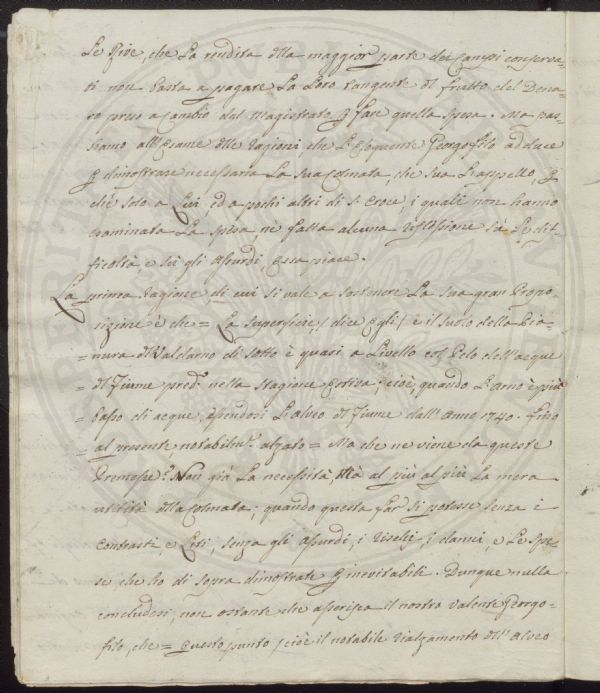 Le Rive, che La rendita della maggior parte dei Campi conserva=
ti non basta a pagare La Loro tangente del frutto del Dena=
ro preso a cambio dal magistrato p fare quella Spesa. Ma pas=
siamo all'Esame delle Ragioni, che L'Eloquente Georgofilo adduce
p dimostrare necessaria La sua Colmata, che sua L'appello, p
che solo a Lui ed a pochi altri di S. Croce, i quali non hanno
esaminata La Spesa, ne fatta alcuna riflessione su Le dif=
ficoltà, e su gli assurdi, essa piace.
La prima ragione di cui si vale a sostenere La sua gran Propo=
sizione è che = La superficie, (dice Egli) e il suolo della Pia=
= nura di Valdarno di sotto è quasi a Livello col Pelo dell'acque
= del Fiume pred.º nella Stagione Estiva, cioè, quando L'Arno è più
= basso di acque, essendosi L'alveo del Fiume dall'Anno 1740. fino
= al presente, notabilm.e alzato = Ma che ne viene da queste
Premesse? Non già La necessità, Mà al più al più La mera
utilità della Colmata; quando questa far si potesse senza i
contrasti, e Liti, senza gli assurdi, i rischi, i danni, e Le Spe=
se, che ho di sopra dimostrate p inevitabili. Dunque nulla
concludesi, non ostante che asserisca il nostro valente Georgo=
filo, che = Questo punto, (cioè il notabile rialzamento dell'Alveo